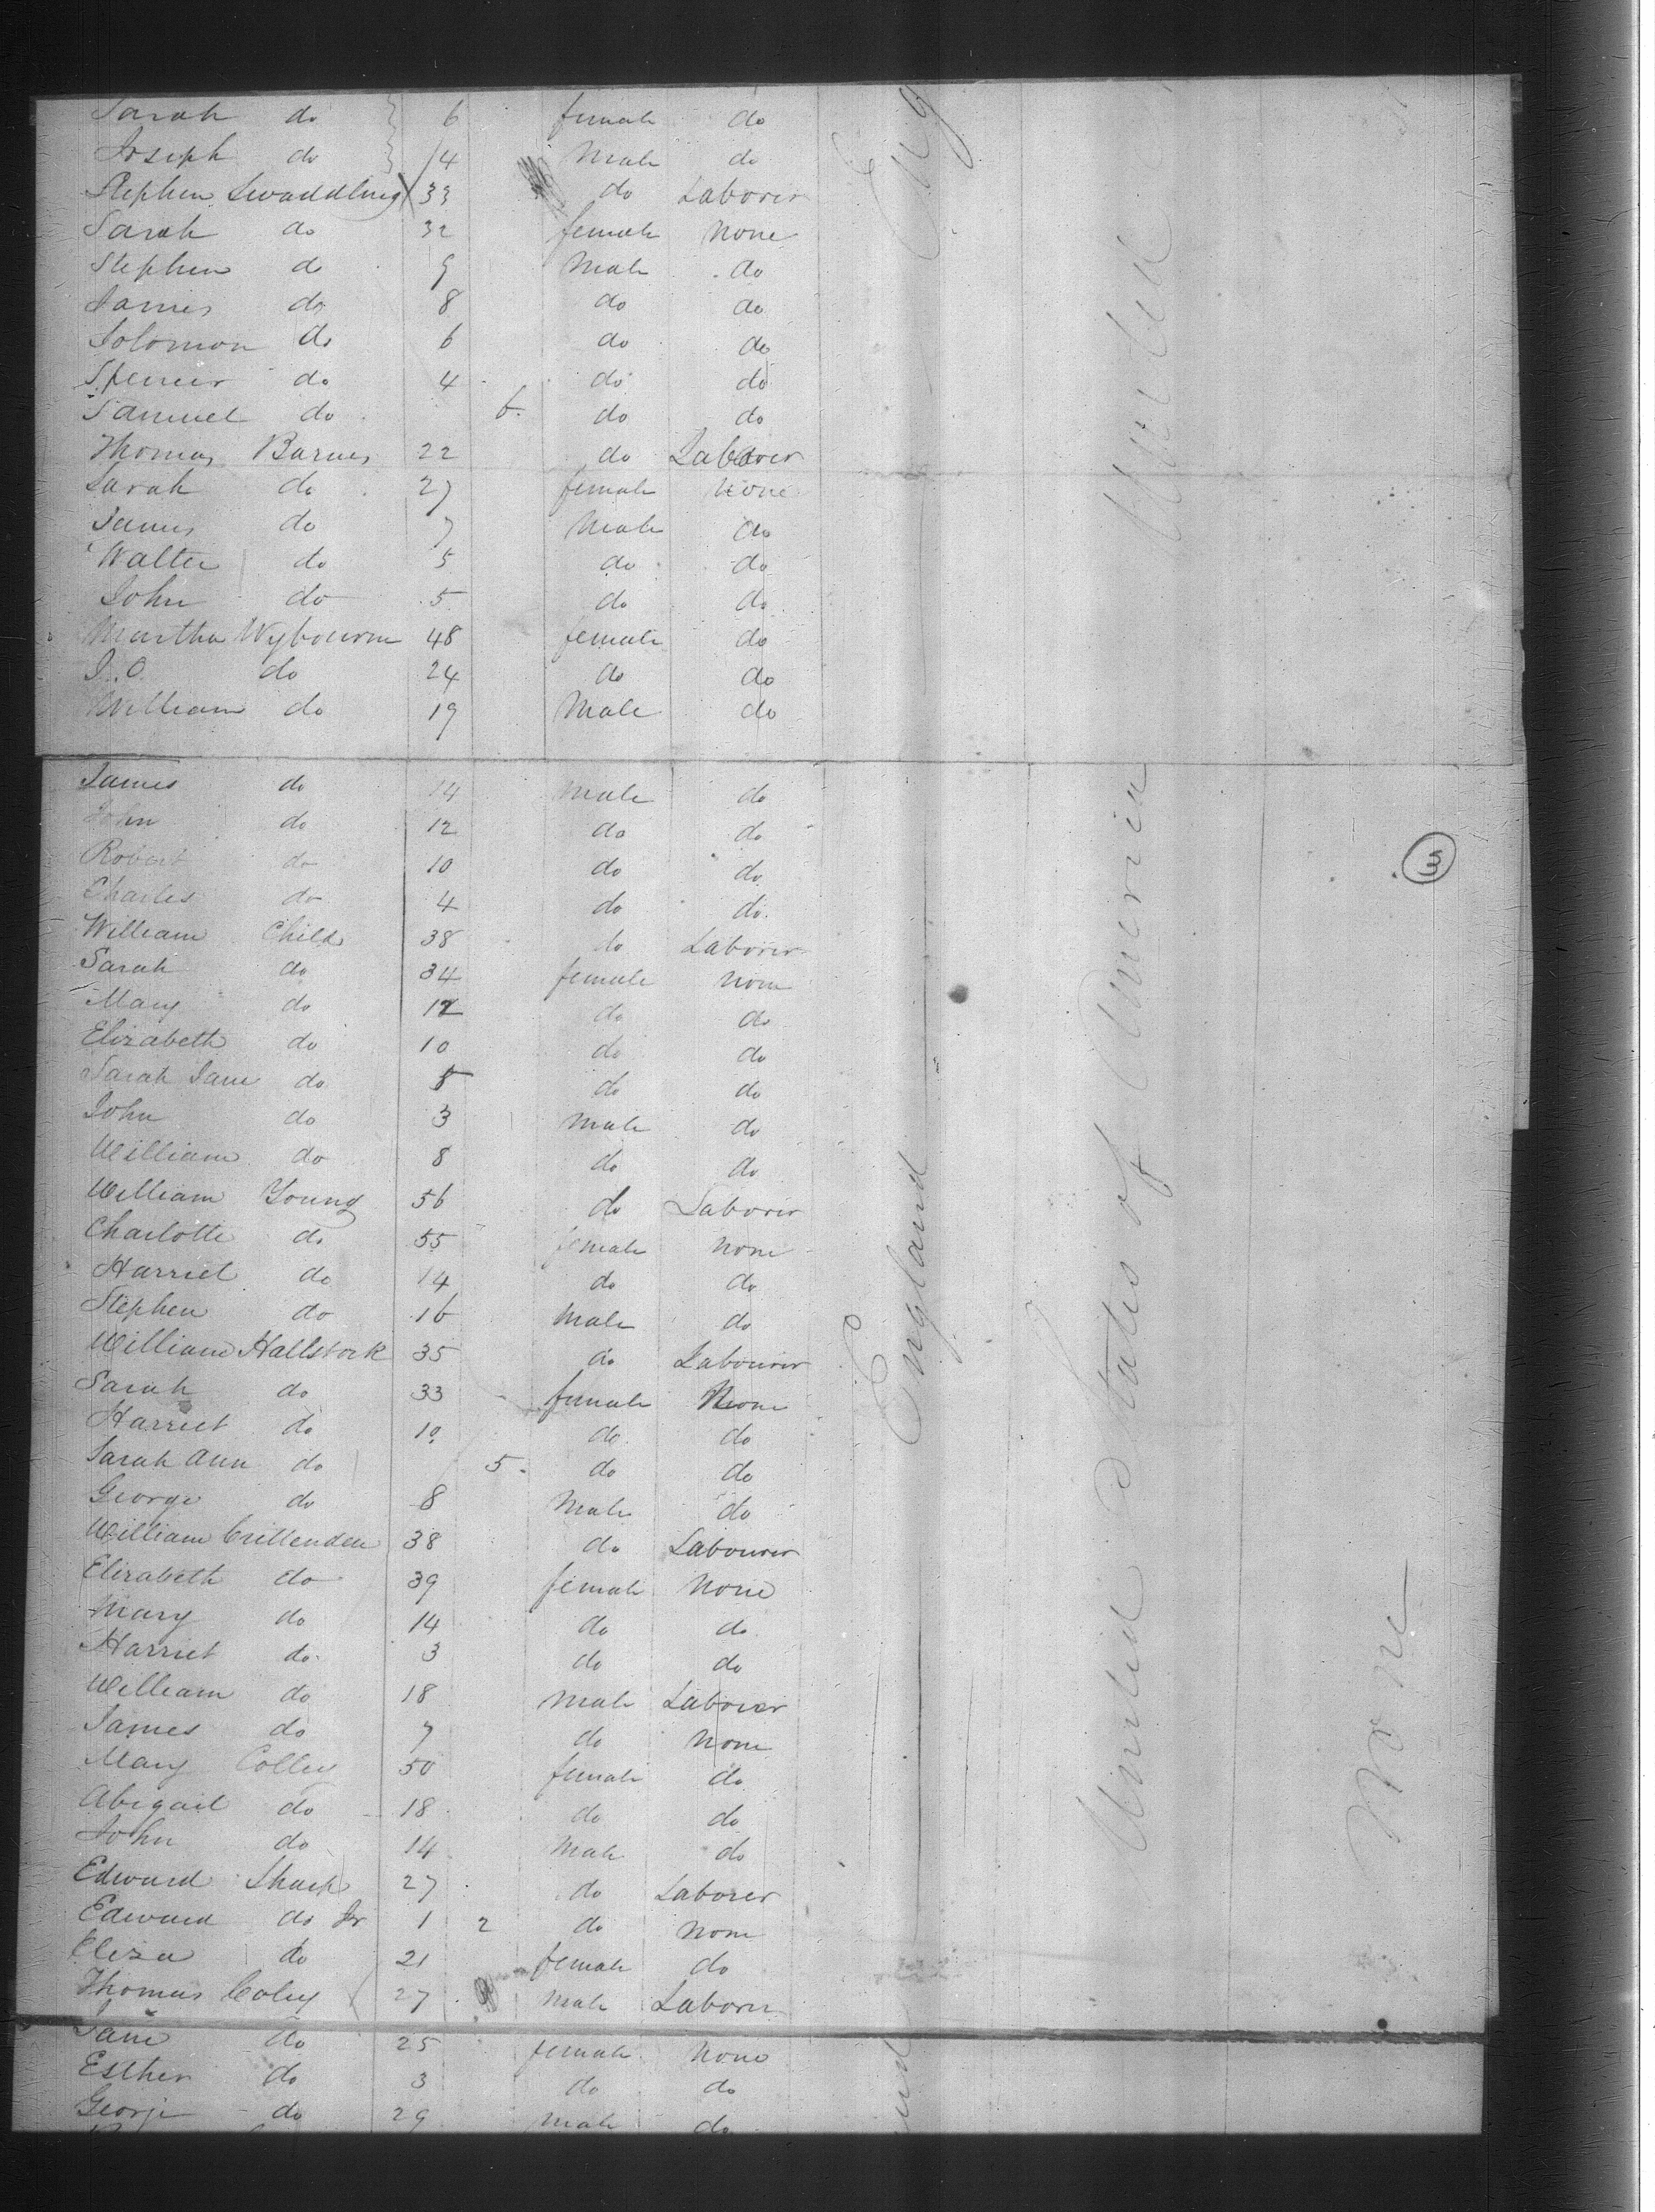 Sarah do 6 female do
Joseph do 14 Male do
Stephen Swaddling 33 do Laborer
Sarah do 32 female None
Stephen do 9 Male do
James do 8 do do
Solomon do 6 do do
Spencer do 4 do do
Samuel do 6 do do
Thomas Barnes 22 do Laborer
Sarah do 27 female None
James do 7 Male do
Walter do 5 do do
John do 5 do do
Martha Wybourn 48 female do
J. O. do 24 do do
William do 19 Male do
James do 14 Male do
John do 12 do do
Robert do 10 do do
Charles do 4 do do
William Childs 38 do Laborer
Sarah do 34 female None
Mary do 12 do do
Elizabeth do 10 do do
Sarah Jane do 5 do do
John do 3 Male do
William do 8 do do
William Young 56 do Laborer
Charlotte do 55 female None
Harriet do 14 do do
Stephen do 16 Male do
William Hallstork 35 do Labourer
Sarah do 33 female None
Harriet do 10 do do
Sarah Ann do 5 do do
George do 8 Male do
William Crittenden 38 do Labourer
Elizabeth do 39 female None
Mary do 14 do do
Harriet do 3 do do
William do 18 Male Laborer
James do 7 do None
Mary Colley 50 female do
Abigail do 18 do do
John do 14 Male do
Edward 27 do Laborer
Edward do Jr 1 2 do None
Eliza do 21 female do
Thomas Coley 27 Male Laborer
Jane do 25 female None
Esther do 3 do do
George do 29 Male do
Eng
England
United
United States of America
None
3